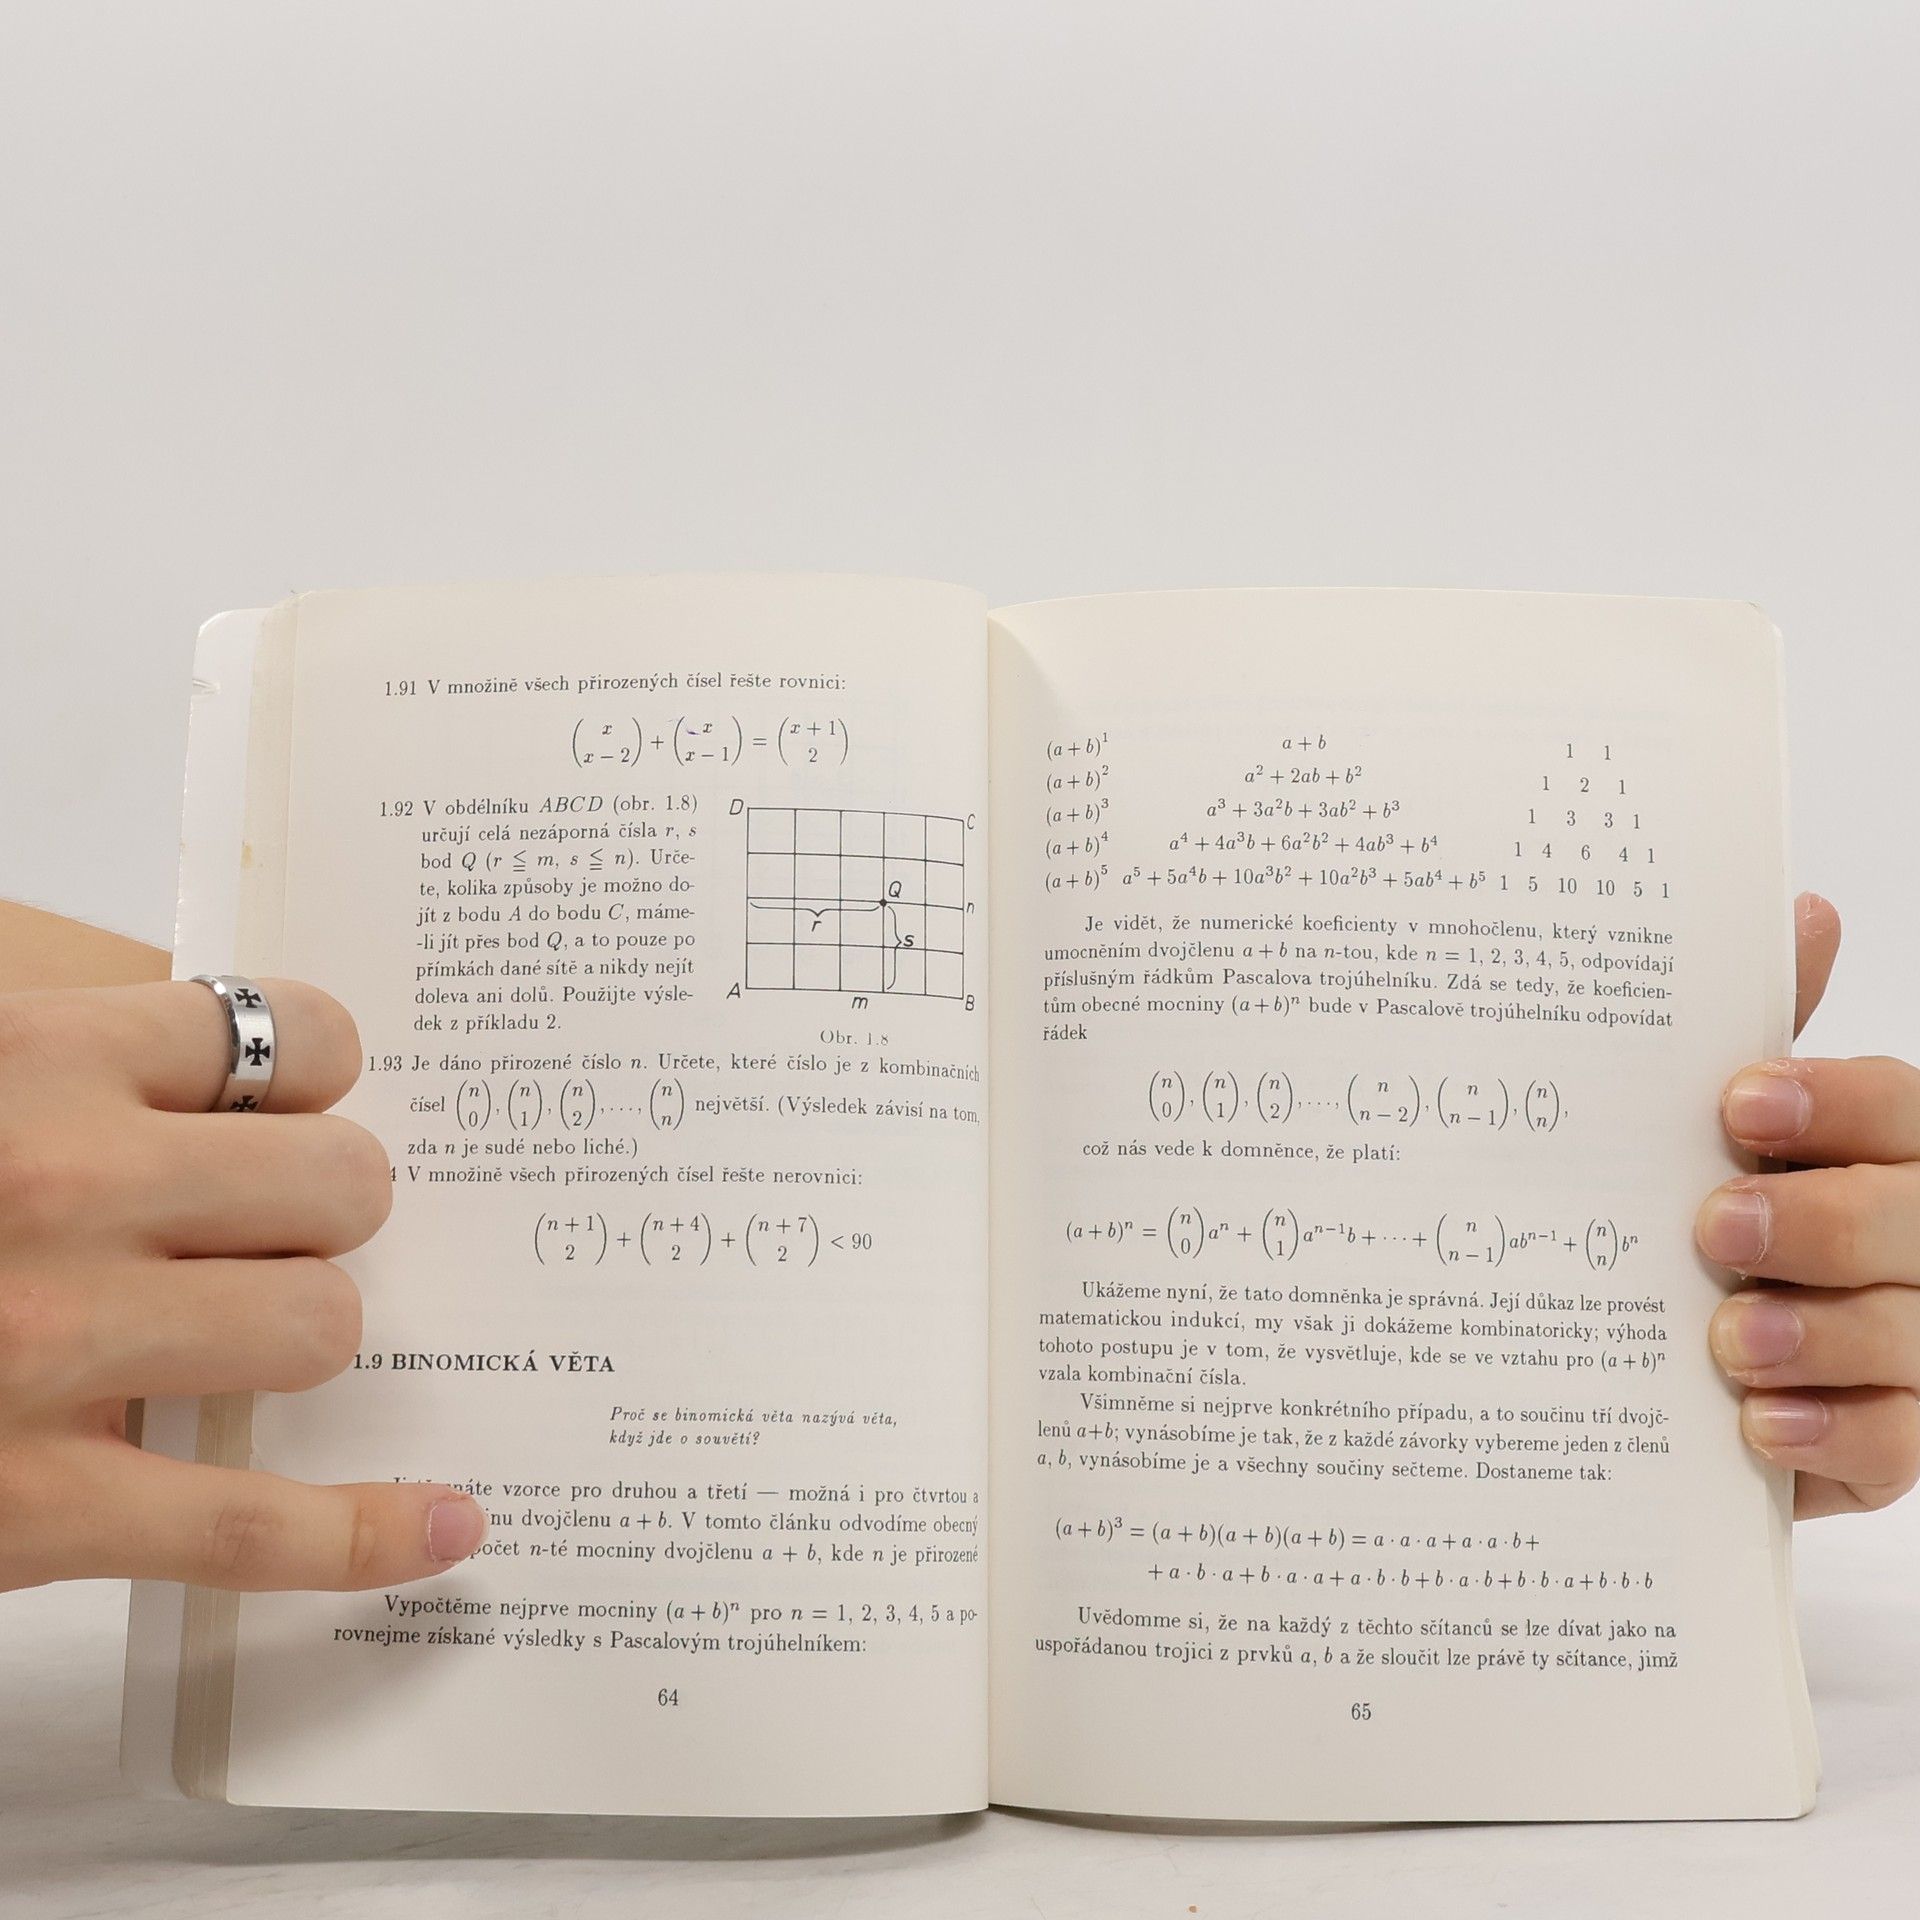 1.91 V množině všech přirozených čísel řešte rovnici:
(x x − 2) + (x x − 1) = (x + 1 2)
1.92 V obdélníku ABCD (obr. 1.8)
určují celá nezáporná čísla r, s
bod Q (r ≦ m, s ≦ n). Urče-
te, kolika způsoby je možno do-
jít z bodu A do bodu C, máme-
-li jít přes bod Q, a to pouze po
přímkách dané sítě a nikdy nejít
doleva ani dolů. Použijte výsle-
dek z příkladu 2.
D
C
Q
n
r
s
A
m
B
Obr. 1.8
1.93 Je dáno přirozené číslo n. Určete, které číslo je z kombinačních
čísel (n 0), (n 1), (n 2), ..., (n n) největší. (Výsledek závisí na tom,
zda n je sudé nebo liché.)
4 V množině všech přirozených čísel řešte nerovnici:
(n + 1 2) + (n + 4 2) + (n + 7 2) < 90
1.9 BINOMICKÁ VĚTA
Proč se binomická věta nazývá věta,
když jde o souvětí?
vzorce pro druhou a třetí — možná i pro čtvrtou a
dvojčlenu a + b. V tomto článku odvodíme obecný
n-té mocniny dvojčlenu a + b, kde n je přirozené
Vypočtěme nejprve mocniny (a + b)ⁿ pro n = 1, 2, 3, 4, 5 a po-
rovnejme získané výsledky s Pascalovým trojúhelníkem:
64
(a + b)¹ a + b 1 1
(a + b)² a² + 2ab + b² 1 2 1
(a + b)³ a³ + 3a²b + 3ab² + b³ 1 3 3 1
(a + b)⁴ a⁴ + 4a³b + 6a²b² + 4ab³ + b⁴ 1 4 6 4 1
(a + b)⁵ a⁵ + 5a⁴b + 10a³b² + 10a²b³ + 5ab⁴ + b⁵ 1 5 10 10 5 1
Je vidět, že numerické koeficienty v mnohočlenu, který vznikne
umocněním dvojčlenu a + b na n-tou, kde n = 1, 2, 3, 4, 5, odpovídají
příslušným řádkům Pascalova trojúhelníku. Zdá se tedy, že koeficien-
tům obecné mocniny (a + b)ⁿ bude v Pascalově trojúhelníku odpovídat
řádek
(n 0), (n 1), (n 2), ..., (n n − 2), (n n − 1), (n n),
což nás vede k domněnce, že platí:
(a + b)ⁿ = (n 0)aⁿ + (n 1)aⁿ⁻¹b + ··· + (n n − 1)abⁿ⁻¹ + (n n)bⁿ
Ukážeme nyní, že tato domněnka je správná. Její důkaz lze provést
matematickou indukcí, my však ji dokážeme kombinatoricky; výhoda
tohoto postupu je v tom, že vysvětluje, kde se ve vztahu pro (a + b)ⁿ
vzala kombinační čísla.
Všimněme si nejprve konkrétního případu, a to součinu tří dvojč-
lenů a+b; vynásobíme je tak, že z každé závorky vybereme jeden z členů
a, b, vynásobíme je a všechny součiny sečteme. Dostaneme tak:
(a + b)³ = (a + b)(a + b)(a + b) = a · a · a + a · a · b +
+ a · b · a + b · a · a + a · b · b + b · a · b + b · b · a + b · b · b
Uvědomme si, že na každý z těchto sčítanců se lze dívat jako na
uspořádanou trojici z prvků a, b a že sloučit lze právě ty sčítance, jimž
65